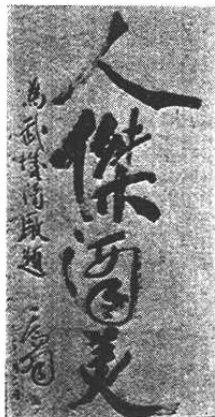 人傑酒美
為武陵酒廠題